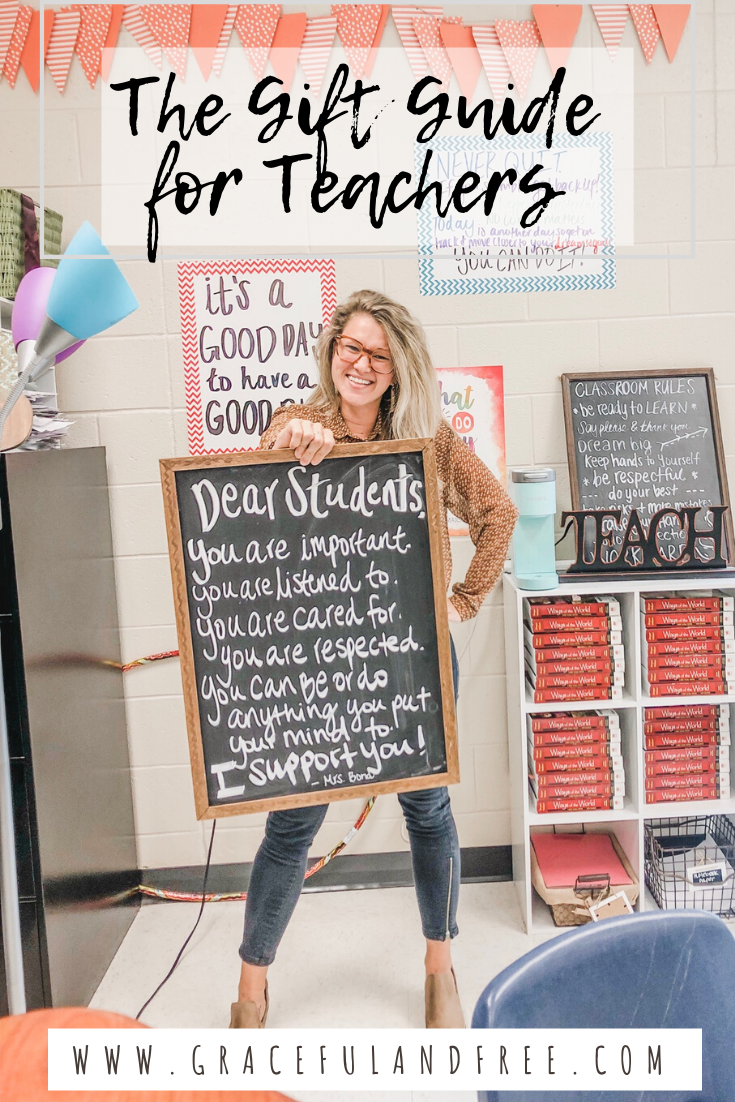 The Gift Guide
for Teachers
NEVER QUIT.
back up!
Today is another day to get on
track & move closer to your dreams & goals
YOU CAN DO IT!
it's a
GOOD DAY
to have a
GOOD
What
DO
CLASSROOM RULES
• be ready to LEARN •
Say please & thank you
Dream big
Keep hands to yourself
* be respectful *
do your best
TEACH
Dear Students,
you are important.
you are listened to.
you are cared for.
you are respected.
you can be or do
anything you put
your mind to.
I support you!
- Mrs. Bond
Ways of the World
Ways of the World
Ways of the World
Ways of the World
WWW.GRACEFULANDFREE.COM